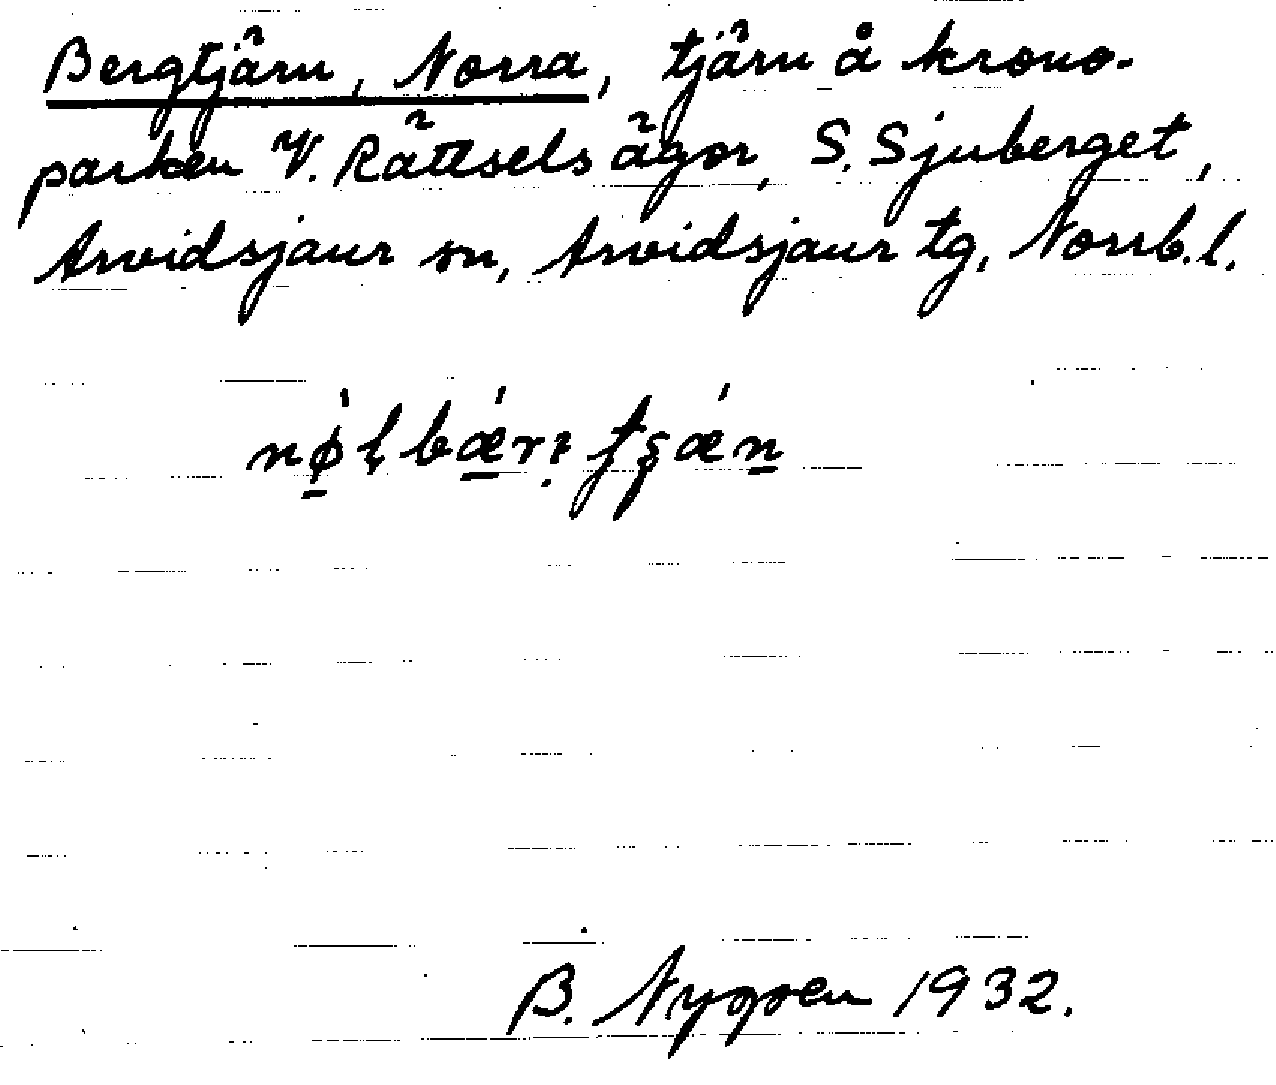 Bergtjärn, Norra, tjärn å krono-
parken V. Rättsels ägor, S. Sjuberget,
Arvidsjaur sn, Arvidsjaur tg, Norrb.l.
B. Nygren 1932.